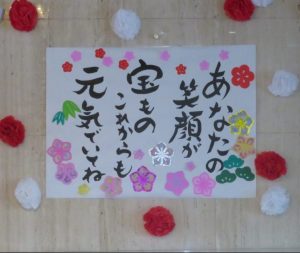 あなたの
笑顔が
宝もの
これからも
元気でいてね